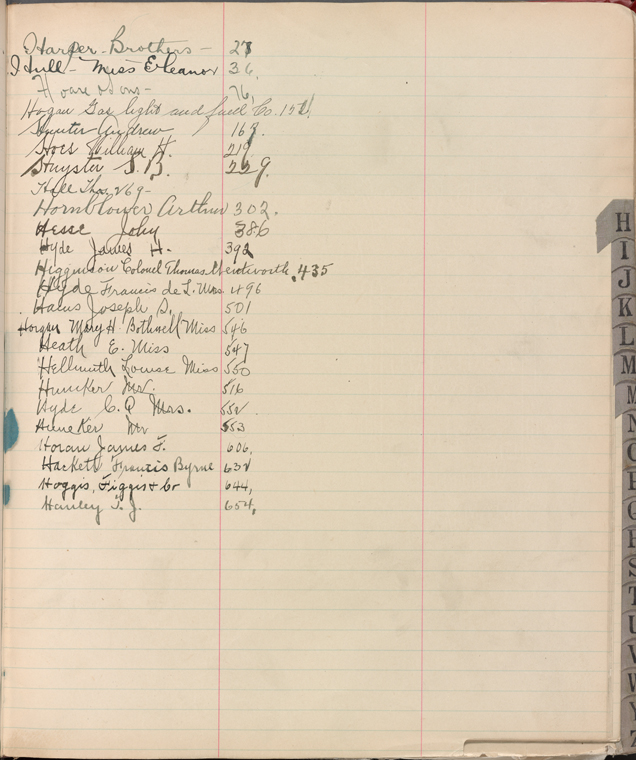 Harper - Brothers - 27
Hull - Miss Eleanor 36.
Hoare & Sons - 76,
Hogan Gas light and fuel Co. 152
Hunter Andrew 167.
Hoes William H. 219
Huyster S. B. 229.
Hill Thos 269 -
Hornblower Arthur 302.
Hesse John 386
Hyde James H. 392
Higginson Colonel Thomas Wentworth. 435
Hyde Francis de L. Mrs. 496
Joseph S. 501
Horgan Mary H. Bothwell Miss 546
Heath E. Miss 547
Hellmuth Louise Miss 550
Huneker Mr. 516
Hyde C. Q Mrs. 552
Huneker Mr 553
Horan James F. 606,
Hackett Francis Byrne 632
Hoggis, Figgis & Co 644,
Hanley T. J. 654,
H
I
J
K
L
M
M
N
O
P
Q
R
S
T
U
V
W
Y
Z